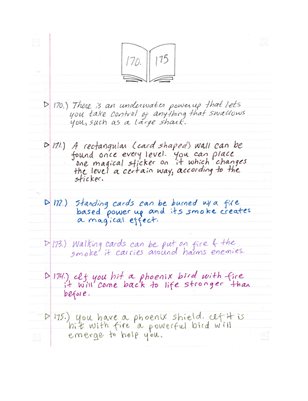 170. 175
▷ 170.) There is an underwater powerup that lets
you take control of anything that swallows
you, such as a large shark.
▷ 171.) A rectangular (card shaped) wall can be
found once every level. You can place
one magical sticker on it which changes
the level a certain way, according to the
sticker.
▷ 172.) Standing cards can be burned w/ a fire
based power up and its smoke creates
a magical effect.
▷ 173.) Walking cards can be put on fire & the
smoke it carries around harms enemies.
▷ 174.) If you hit a phoenix bird with fire
it will come back to life stronger than
before.
▷ 175.) You have a phoenix shield. If it is
hit with fire a powerful bird will
emerge to help you.